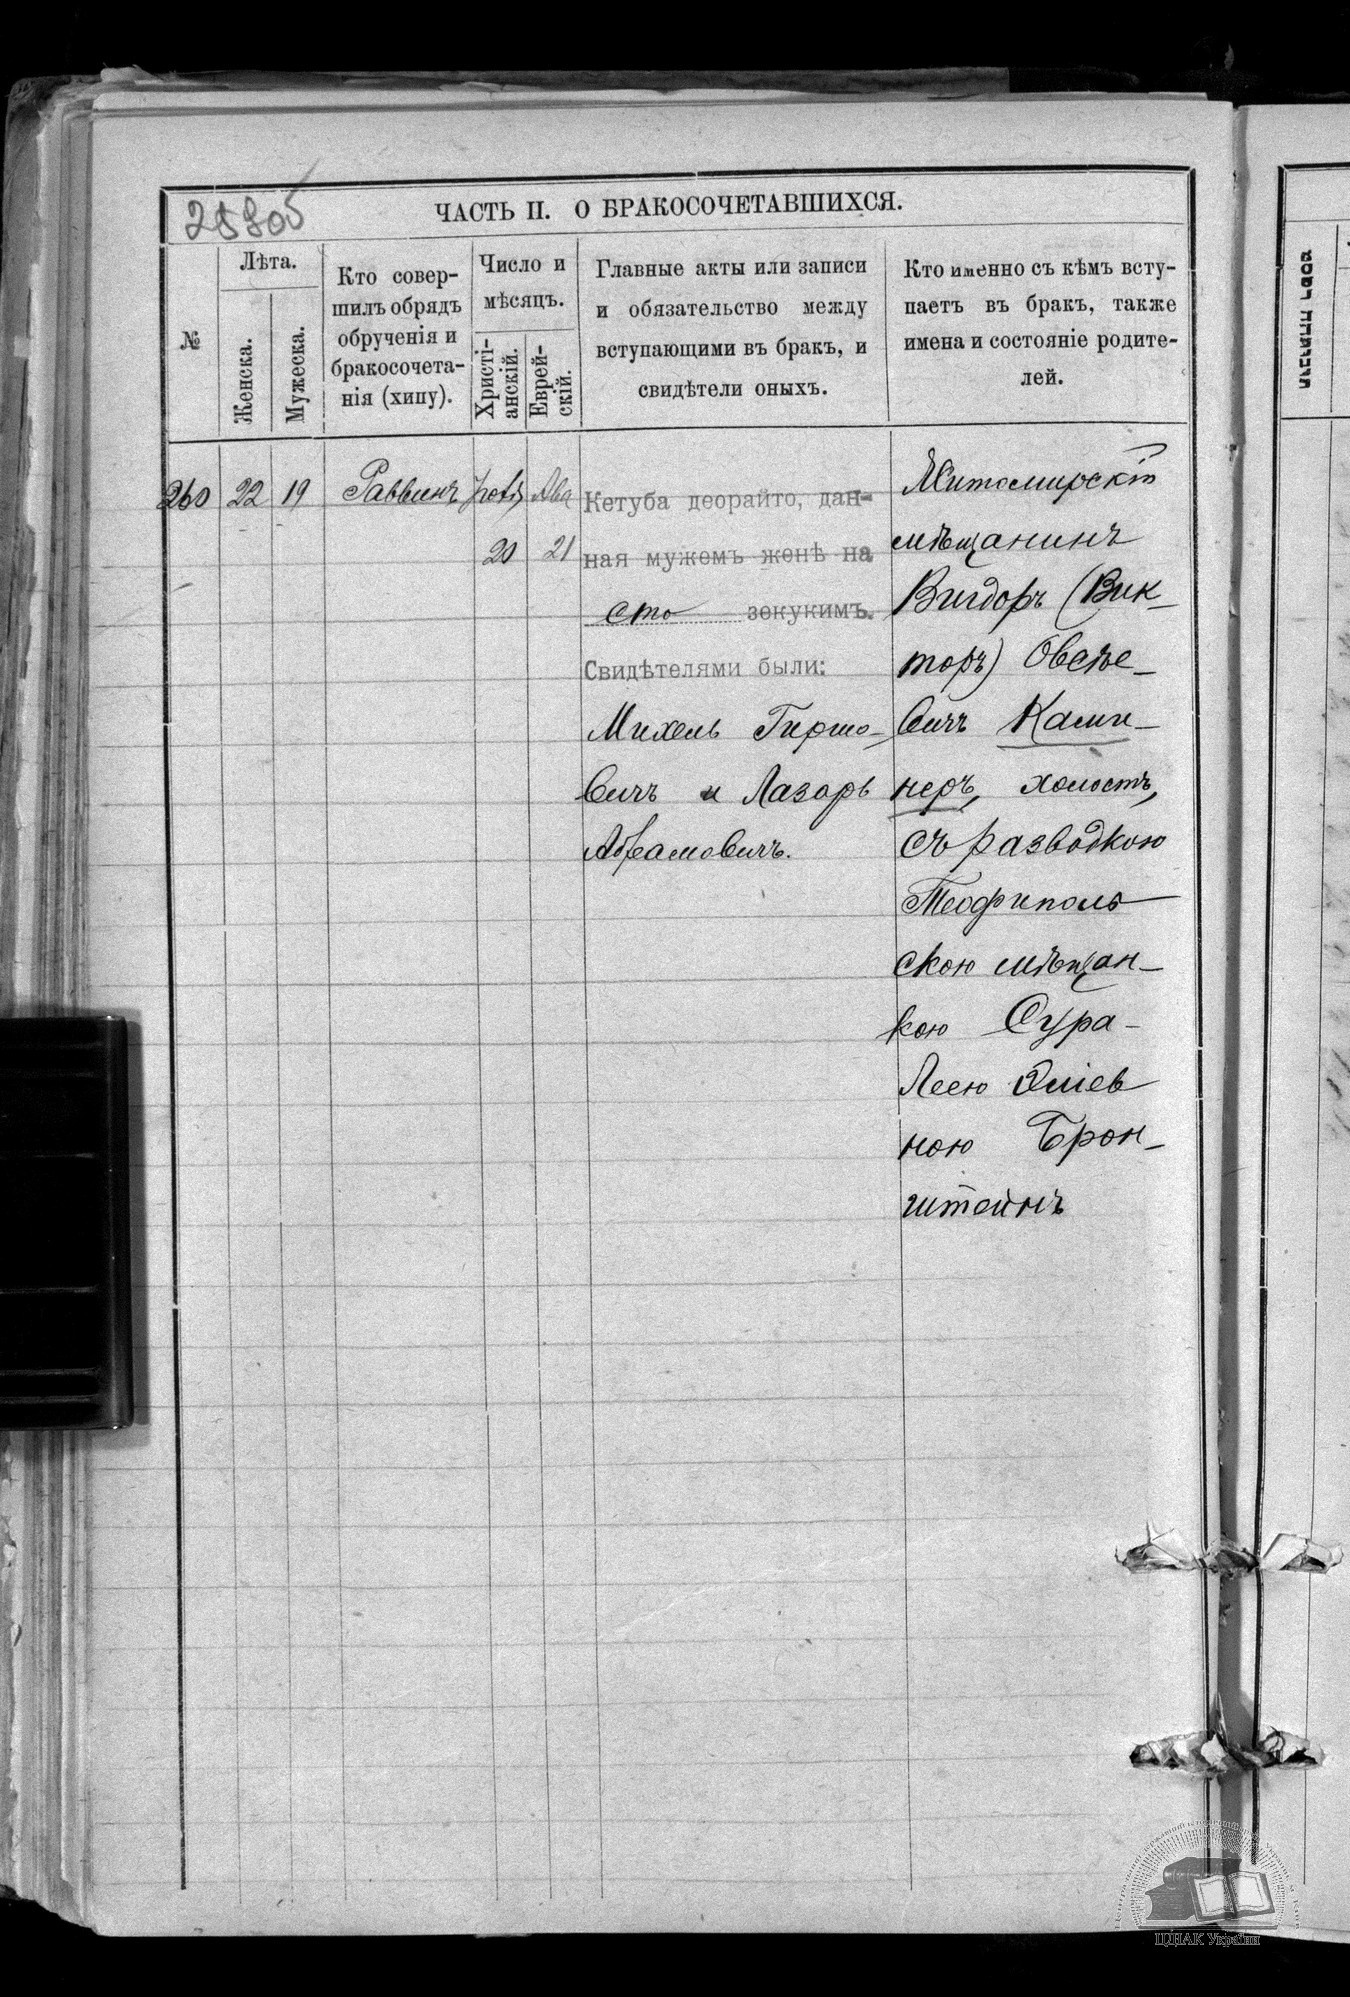 25805
ЧАСТЬ II. О БРАКОСОЧЕТАВШИХСЯ.
№
Лѣта.
Женска.
Мужеска.
Кто совер-
шилъ обрядъ
обрученія и
бракосочета-
нія (хипу).
Число и
мѣсяцъ.
Христі-
анскій.
Еврей-
скій.
Главные акты или записи
и обязательство между
вступающими въ бракъ, и
свидѣтели оныхъ.
Кто именно съ кѣмъ всту-
паетъ въ бракъ, также
имена и состояніе родите-
лей.
260 22 19 Раввинъ Ава
20 21
Кетуба деорайто, дан-
ная мужемъ женѣ на
сто зекукимъ.
Свидѣтелями были:
Михель Гиршо-
вичъ и Лазарь
Абрамовичъ.
Житомирскій
мѣщанинъ
Вигдоръ (Вик-
торъ) Овсѣе-
вичъ Ками-
неръ, холостъ,
съ разводкою
Теофиполь
скою мѣщан-
кою Сура-
Леею Эліев
ною Брон-
штейнъ
ЦДІАК України